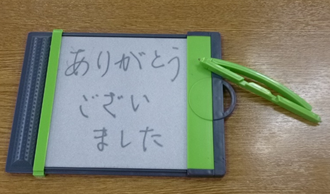 ありがとう
ござい
ました